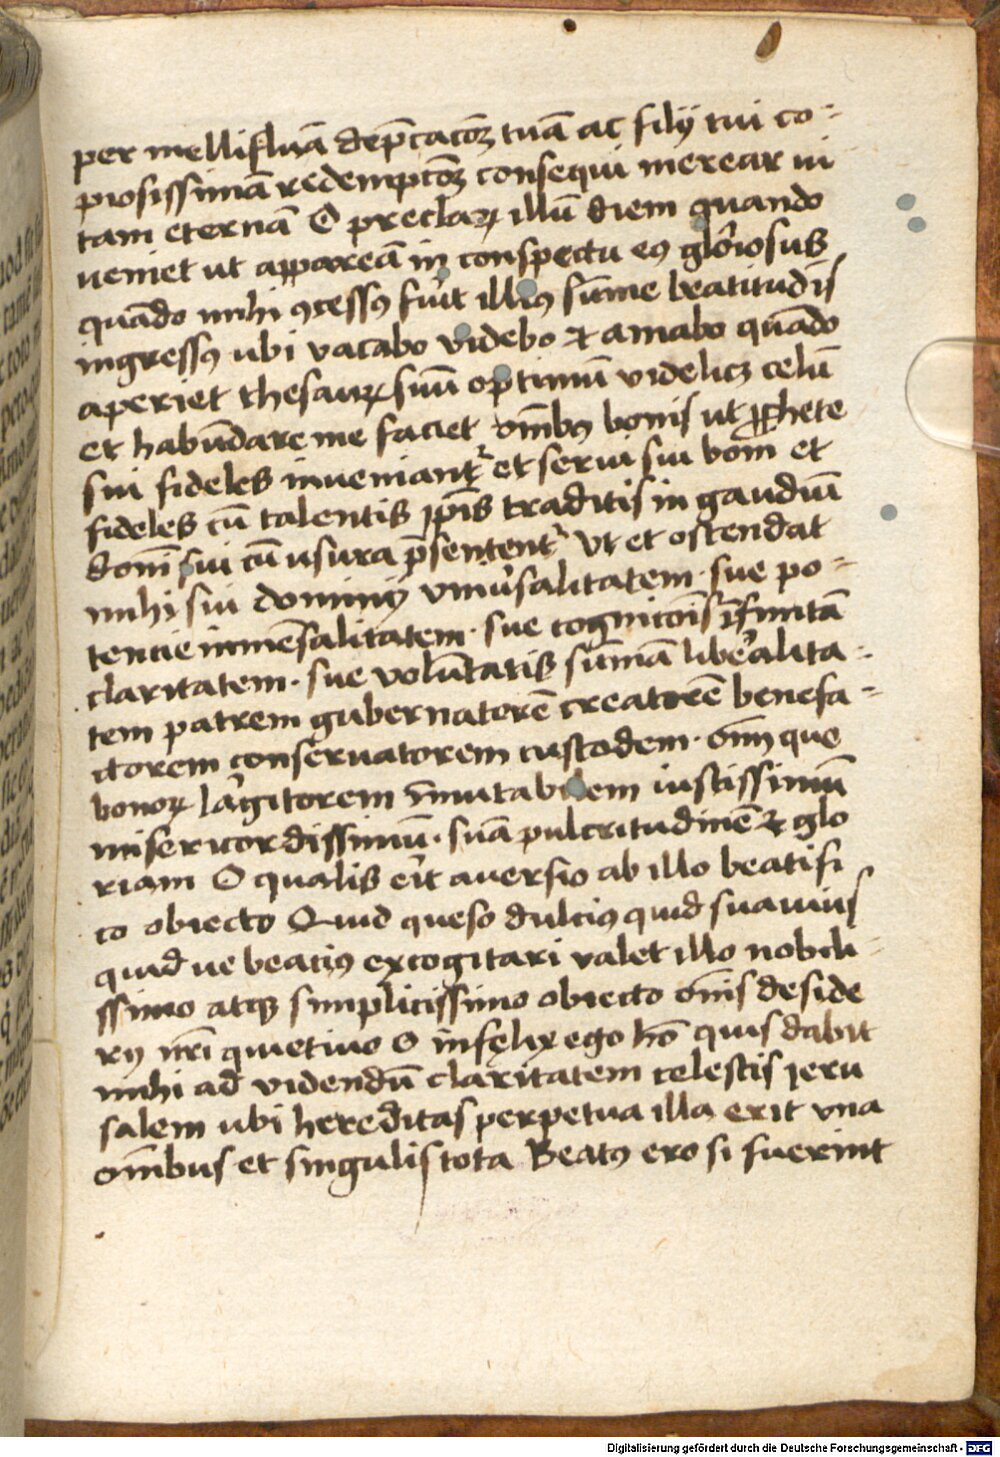 per mellifluā dep̄cacōꝫ tuā ac filij tui co-
piosissimā redempcōꝫ consequi merear vi
tam eternā O preclaꝝ illū diem quando
ueniet ut appareā in conspectu eꝰ gl'iosus
quādo mihi ꝯcessꝰ fu'it illiꝰ sūme beatitudis
ingressꝰ ubi vacabo videbo & amabo quādo
aperiet thesauꝝ suū optimū videlicꝫ celū
et habūdare me faciet om̄ibꝰ bonis ut ꝓphete
sui fideles inueniant᷑ et serui sui boni et
fideles cū talentis ip̄is traditis in gaudiū
domī sui cū usura p̄sentent᷑ Vt et ostendat
mihi sui dominij vniu'salitatem · sue po-
tencie inmēsalitatem · sue cognicōis īfinitā
claritatem · sue volūtatis sūmā libe'alita-
tem patrem gubernatorē creatorē benefa-
ctorem conseruatorem custodem · om̄m que
bonoꝝ la'gitorem īmutabilem iustissimū
misericordissimū · suā pulcritudinē & glo
riam O qualis e'it auersio ab illo beatifi
co obiecto Quid queso dulciꝰ quid suauius
quid ue beaciꝰ excogitari valet illo nobili-
ssimo atqꝫ simplicissimo obiecto om̄is deside
rij nr̄i quietiuo O infelix ego hō quis dabit
mihi ad videndū claritatem celestis jeru
salem ubi hereditas perpetua illa erit vna
om̄ibus et singulis tota Beatꝰ ero si fuerint
Digitalisierung gefördert durch die Deutsche Forschungsgemeinschaft - DFG